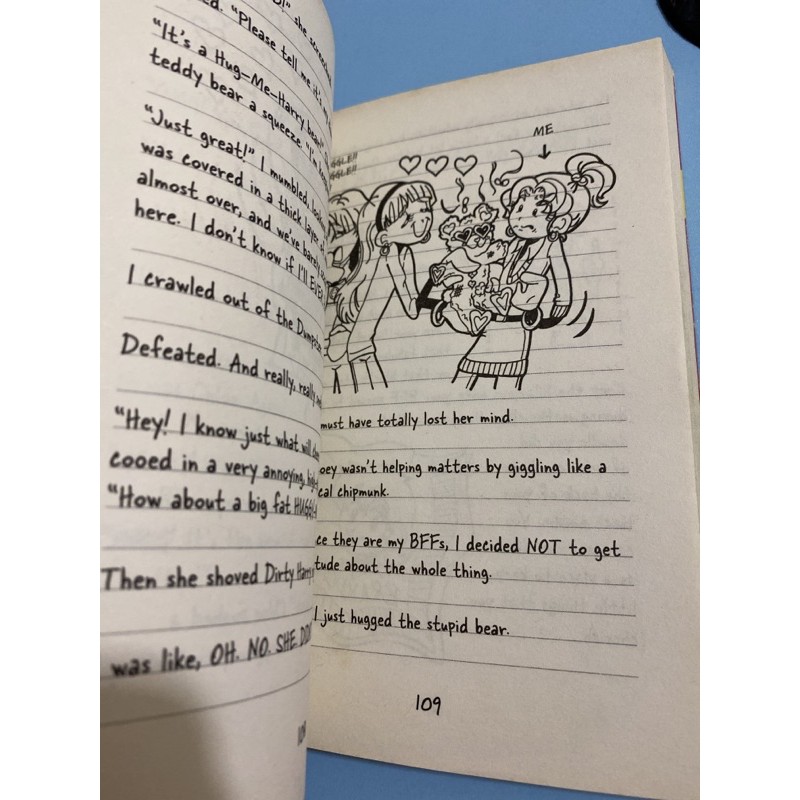 she screeched.
"Please tell me it's
"It's a Hug-Me-Harry bear!"
teddy bear a squeeze. "I'm
"Just great!" I mumbled,
was covered in a thick layer of
almost over, and we've barely
here. I don't know if I'll EVER
I crawled out of the Dumpster
Defeated. And really, really
"Hey! I know just what will
cooed in a very annoying,
"How about a big fat
Then she shoved Dirty Harry
was like, OH. NO. SHE
ME
must have totally lost her mind.
oey wasn't helping matters by giggling like a
cal chipmunk.
ce they are my BFFs, I decided NOT to get
tude about the whole thing.
I just hugged the stupid bear.
109